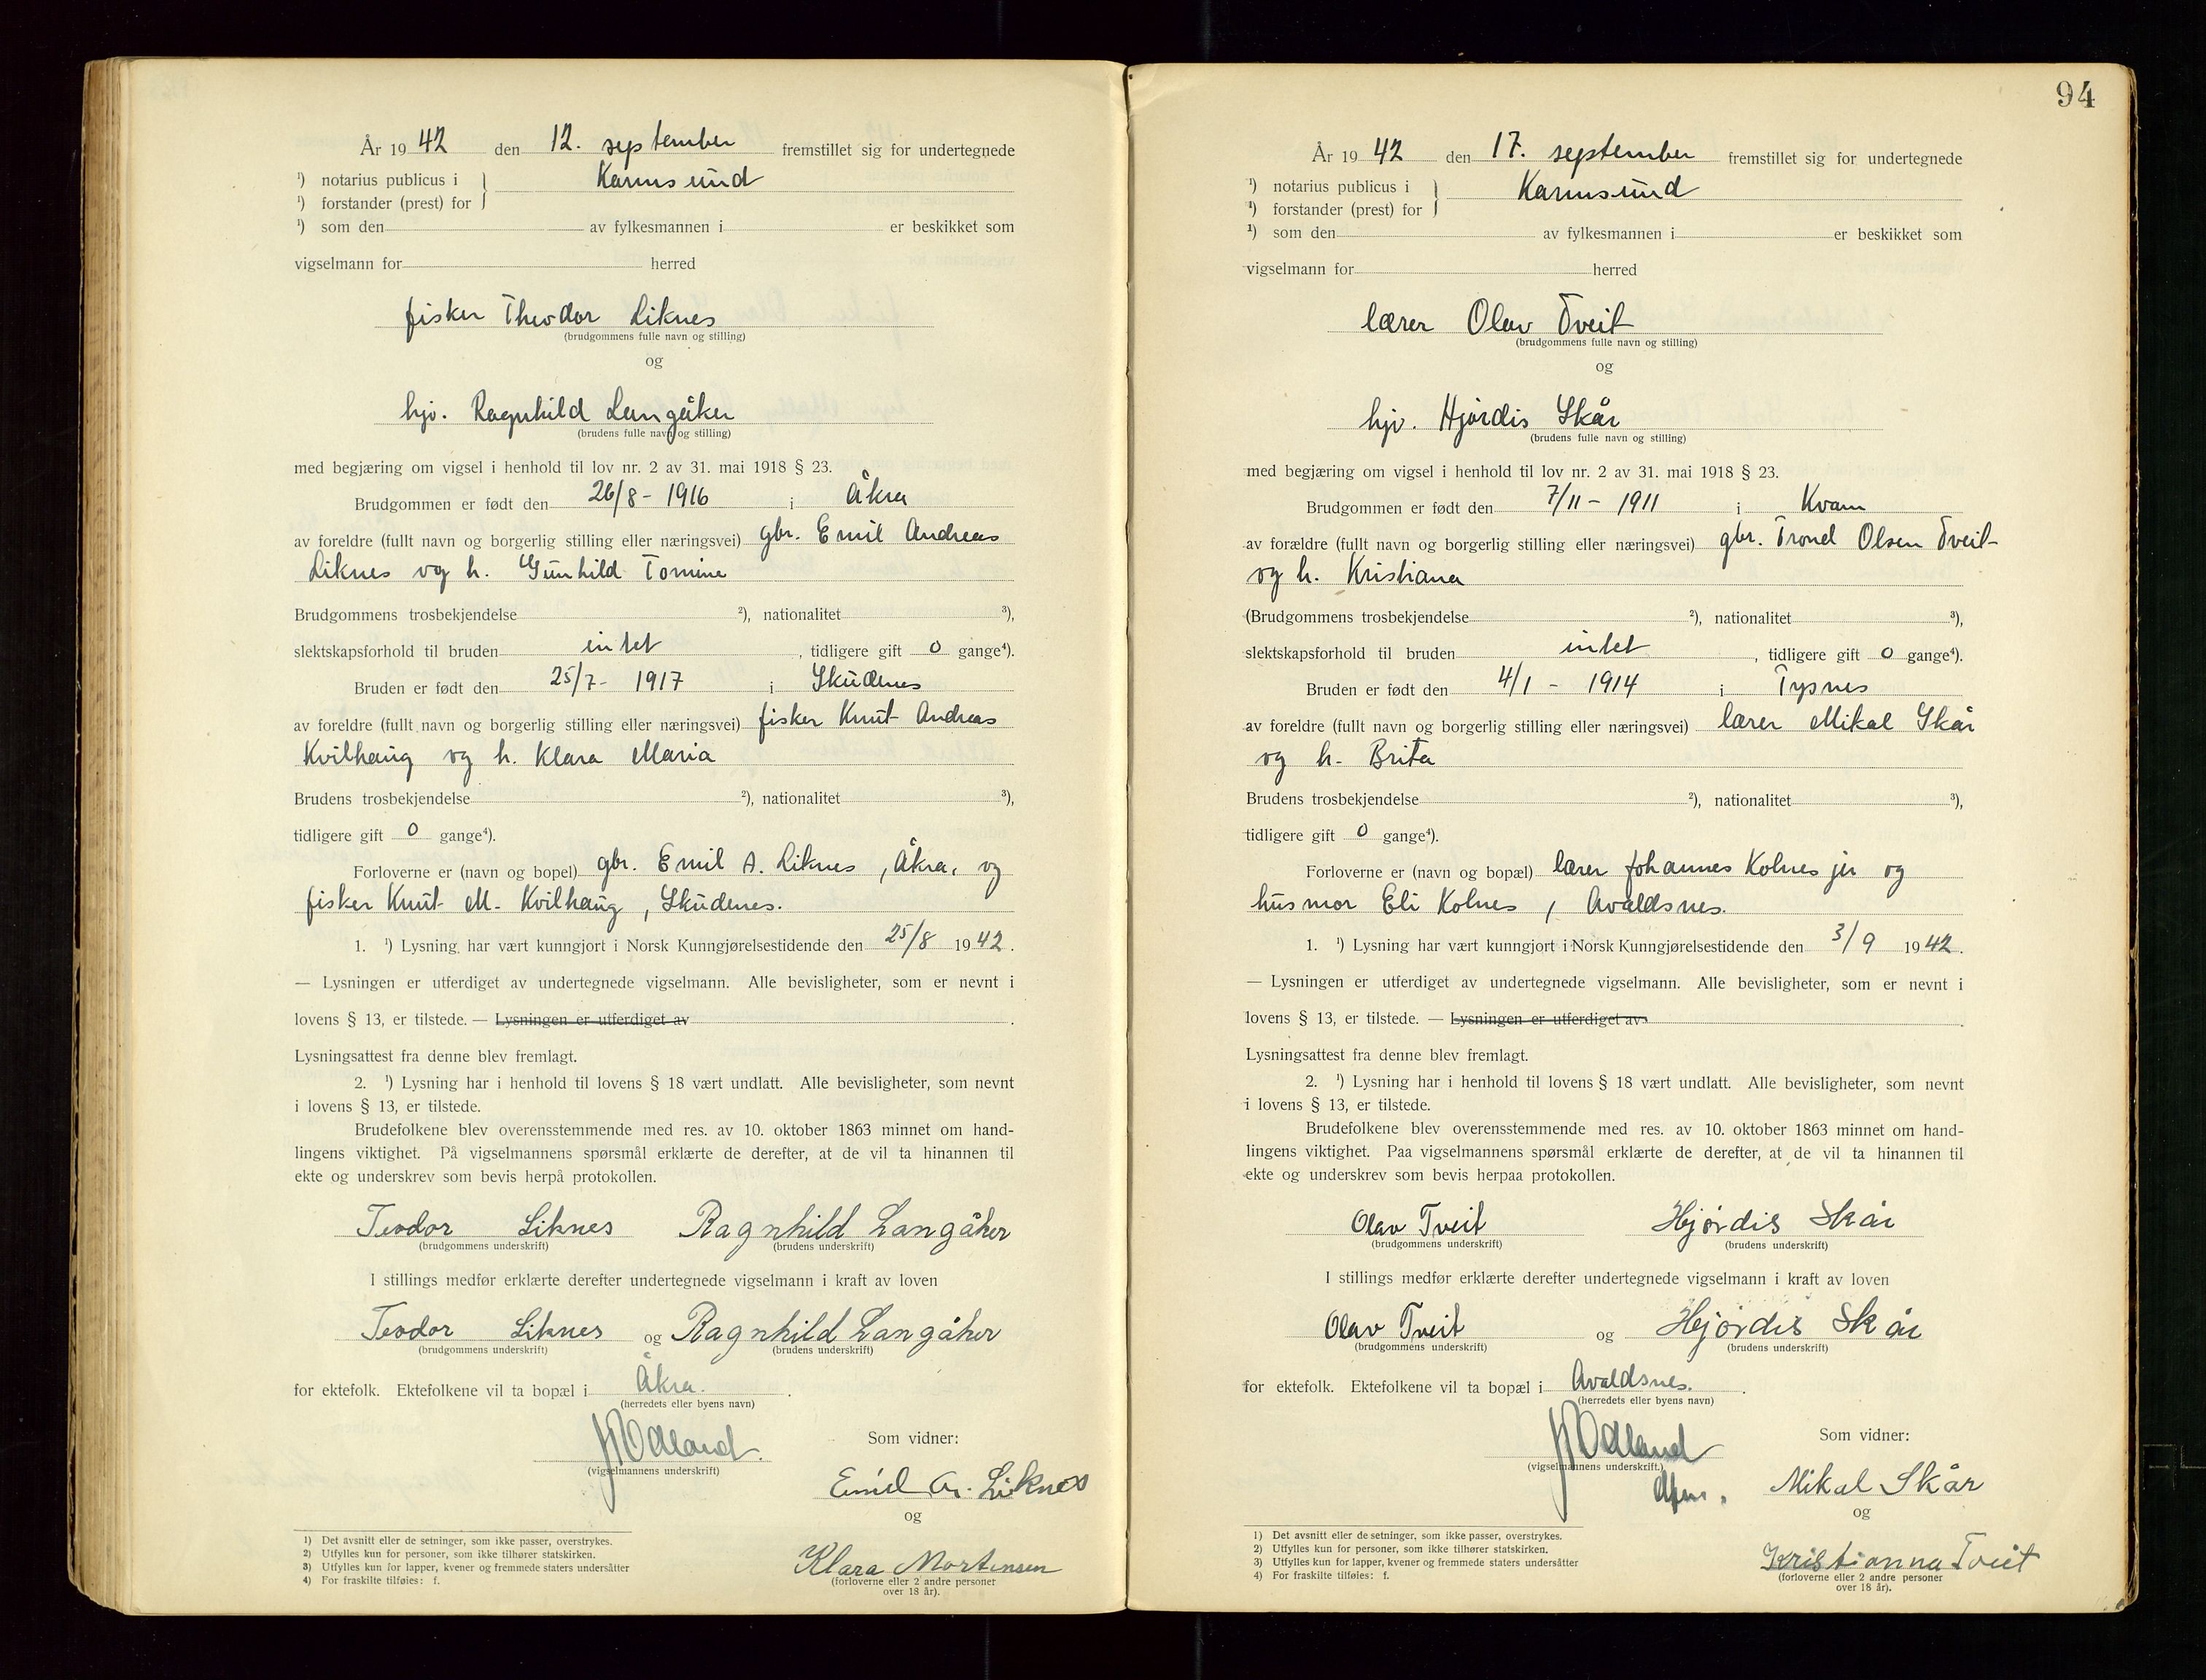 År 1942 den 12. september fremstillet sig for undertegnede
¹) notarius publicus i } Karmsund
¹) forstander (prest) for
¹) som den av fylkesmannen i er beskikket som
vigselmann for herred
fisker Theodor Liknes
(brudgommens fulle navn og stilling)
og
hjv. Ragnhild Langåker
(brudens fulle navn og stilling)
med begjæring om vigsel i henhold til lov nr. 2 av 31. mai 1918 § 23.
Brudgommen er født den 26/8 - 1916 i Åkra
av foreldre (fullt navn og borgerlig stilling eller næringsvei) gbr. Emil Andreas
Liknes og h. Gunhild Tomine
Brudgommens trosbekjendelse ²), nationalitet ³),
slektskapsforhold til bruden intet , tidligere gift 0 gange⁴).
Bruden er født den 25/7 - 1917 i Skudenes
av foreldre (fullt navn og borgerlig stilling eller næringsvei) fisker Knut Andreas
Kvilhaug og h. Klara Maria
Brudens trosbekjendelse ²), nationalitet ³),
tidligere gift 0 gange⁴).
Forloverne er (navn og bopel) gbr. Emil A. Liknes, Åkra, og
fisker Knut M. Kvilhaug, Skudenes.
1. ¹) Lysning har vært kunngjort i Norsk Kunngjørelsestidende den 25/8 1942.
— Lysningen er utferdiget av undertegnede vigselmann. Alle bevisligheter, som er nevnt i
lovens § 13, er tilstede. — Lysningen er utferdiget av .
Lysningsattest fra denne blev fremlagt.
2. ¹) Lysning har i henhold til lovens § 18 vært undlatt. Alle bevisligheter, som nevnt
i lovens § 13, er tilstede.
Brudefolkene blev overensstemmende med res. av 10. oktober 1863 minnet om hand-
lingens viktighet. På vigselmannens spørsmål erklærte de derefter, at de vil ta hinannen til
ekte og underskrev som bevis herpå protokollen.
Teodor Liknes Ragnhild Langåker
(brudgommens underskrift) (brudens underskrift)
I stillings medfør erklærte derefter undertegnede vigselmann i kraft av loven
Teodor Liknes og Ragnhild Langåker
(brudgommens underskrift) (brudens underskrift)
for ektefolk. Ektefolkene vil ta bopæl i Åkra. .
(herredets eller byens navn)
Odland.
(vigselmannens underskrift)
Som vidner:
Emil A. Liknes
og
Klara Mortensen
(forloverne eller 2 andre personer
over 18 år).
1) Det avsnitt eller de setninger, som ikke passer, overstrykes.
2) Utfylles kun for personer, som ikke tilhører statskirken.
3) Utfylles kun for lapper, kvener og fremmede staters undersåtter
4) For fraskilte tilføies: f.
94
År 1942 den 17. september fremstillet sig for undertegnede
¹) notarius publicus i } Karmsund
¹) forstander (prest) for
¹) som den av fylkesmannen i er beskikket som
vigselmann for herred
lærer Olav Tveit
(brudgommens fulle navn og stilling)
og
hjv. Hjørdis Skår
(brudens fulle navn og stilling)
med begjæring om vigsel i henhold til lov nr. 2 av 31. mai 1918 § 23.
Brudgommen er født den 7/11 - 1911 i Kvam
av forældre (fullt navn og borgerlig stilling eller næringsvei) gbr. Trond Olsen Tveit
og h. Kristiana
(Brudgommens trosbekjendelse ²), nationalitet ³),
slektskapsforhold til bruden intet , tidligere gift 0 gange⁴).
Bruden er født den 4/1 - 1914 i Tysnes
av foreldre (fullt navn og borgerlig stilling eller næringsvei) lærer Mikal Skår
og h. Brita
Brudens trosbekjendelse ²), nationalitet ³),
tidligere gift 0 gange⁴).
Forloverne er (navn og bopæl) lærer Johannes Kolnes jr og
husmor Eli Kolnes, Avaldsnes.
1. ¹) Lysning har vært kunngjort i Norsk Kunngjørelsestidende den 3/9 1942.
— Lysningen er utferdiget av undertegnede vigselmann. Alle bevisligheter, som er nevnt i
lovens § 13, er tilstede. — Lysningen er utferdiget av .
Lysningsattest fra denne blev fremlagt.
2. ¹) Lysning har i henhold til lovens § 18 vært undlatt. Alle bevisligheter, som nevnt
i lovens § 13, er tilstede.
Brudefolkene blev overensstemmende med res. av 10. oktober 1863 minnet om hand-
lingens viktighet. Paa vigselmannens spørsmål erklærte de derefter, at de vil ta hinannen til
ekte og underskrev som bevis herpaa protokollen.
Olav Tveit Hjørdis Skår
(brudgommens underskrift) (brudens underskrift)
I stillings medfør erklærte derefter undertegnede vigselmann i kraft av loven
Olav Tveit og Hjørdis Skår
(brudgommens underskrift) (brudens underskrift)
for ektefolk. Ektefolkene vil ta bopæl i Avaldsnes. .
(herredets eller byens navn)
Odland
(vigselmannens underskrift.)
Som vidner:
Mikal Skår
og
Kristianna Tveit
(forloverne eller 2 andre personer
over 18 år).
1) Det avsnitt eller de setninger, som ikke passer, overstrykes.
2) Utfylles kun for personer, som ikke tilhører statskirken.
3) Utfylles kun for lapper, kvener og fremmede staters undersåtter
4) For fraskilte tilføies: f.